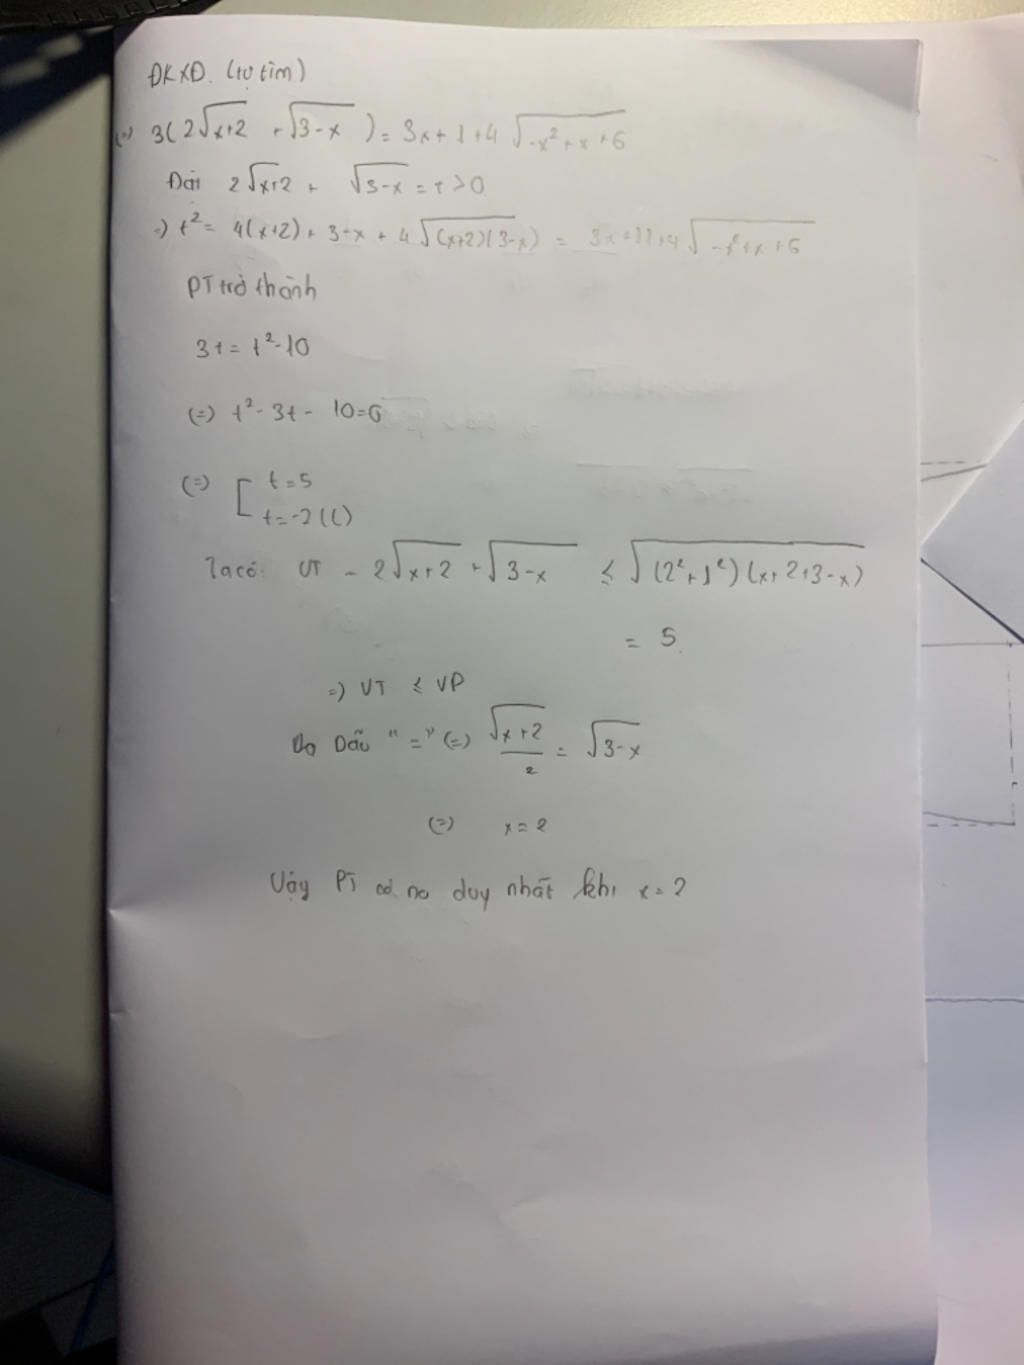 ĐKXĐ. (tự tìm)
(=) 3(2√(x+2) + √(3-x)) = 3x+1+4√(-x²+x+6)
Đặt 2√(x+2) + √(3-x) = t > 0
=) t² = 4(x+2) + 3-x + 4√((x+2)(3-x)) = 3x+11+4√(-x²+x+6)
PT trở thành
3t = t²-10
(=) t² - 3t - 10=0
(=) [ t=5
t=-2 (L)
Ta có: VT = 2√(x+2) + √(3-x) ≤ √((2²+1²)(x+2+3-x))
= 5
=) VT ≤ VP
Dấu "=" (=) √(x+2)/2 = √(3-x)
(=) x=2
Vậy PT có no duy nhất khi x=2